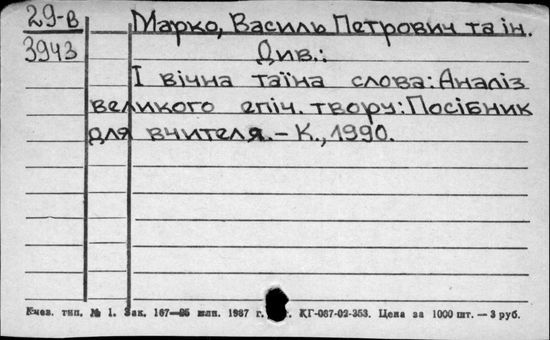 29-в Марко, Василь Петрович та ін.
3943 Див.:
І вічна таїна слова: Аналіз
великого епіч. твору: Посібник
для вчителя. – К., 1990.
Киев. тип. № 1. Зак. 167— млн. 1987 г. КГ-087-02-353. Цена за 1000 шт. — 3 руб.